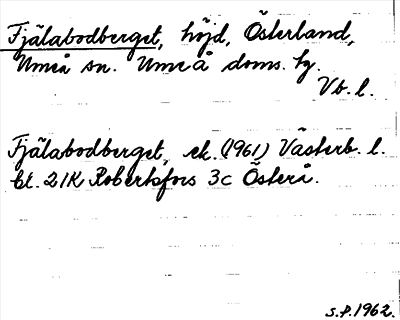 Fjälabodberget, höjd, Österland,
Umeå sn. Umeå doms. hg.
Vb. l.
Fjälabodberget, ek. (1961) Västerb. l.
bl. 21K Robertsfors 3c Österå.
S.P. 1962.